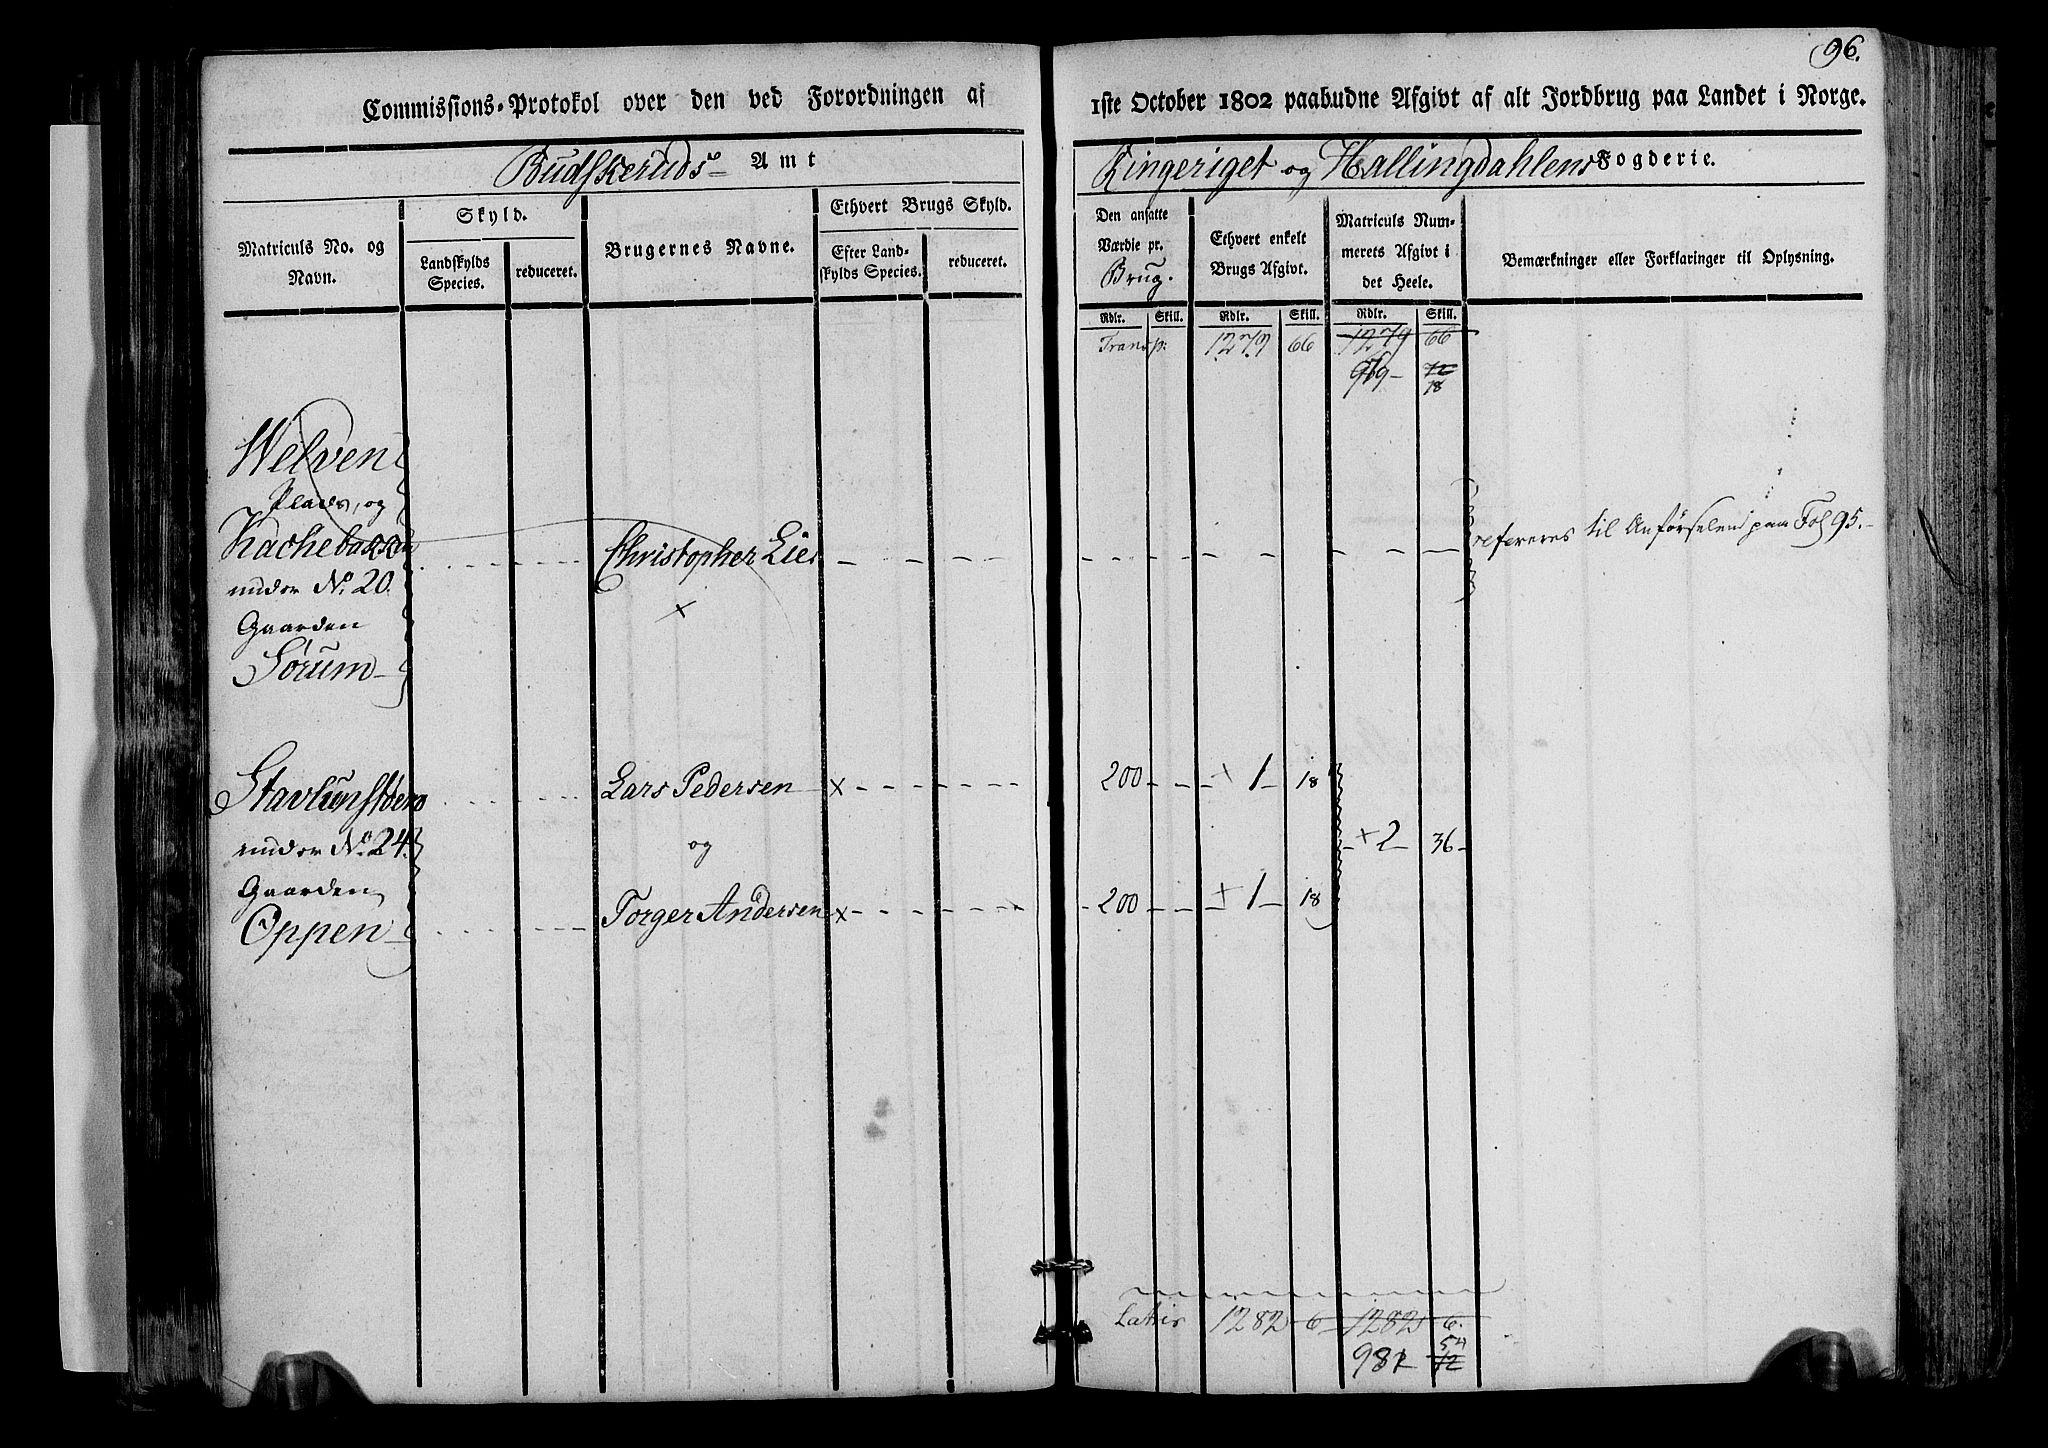 96.
Commissions-Protokol over den ved Forordningen af 1ste October 1802 paabudne Afgivt af alt Jordbrug paa Landet i Norge.
Budskeruds Amt
Ringeriget og Hallingdahlens Fogderie.
Matriculs No. og
Navn.
Skyld.
Landskylds
Species.
reduceret.
Brugernes Navne.
Ethvert Brugs Skyld.
Efter Land-
skylds Species.
reduceret.
Den ansatte
Værdie pr.
Brug.
Ethvert enkelt
Brugs Afgivt.
Matriculs Num-
merets Afgivt i
det Heele.
Bemærkninger eller Forklaringer til Oplysning.
Rdlr. Skill. Rdlr. Skill. Rdlr. Skill.
Transp: 1279 66 1279 66
18
Welven
Plads, og
Kachebakken
under No. 20.
Gaarden
Sørum
Christopher Lie
×
refereres til Anførselen paa Fol 95.
Lars Pedersen × 200 + 1 18
under No. 24.
og
+2 36
Gaarden
Oppen
Torger Andersen × 200 + 1 18
Latris 1282 6 1282 6.
54
12